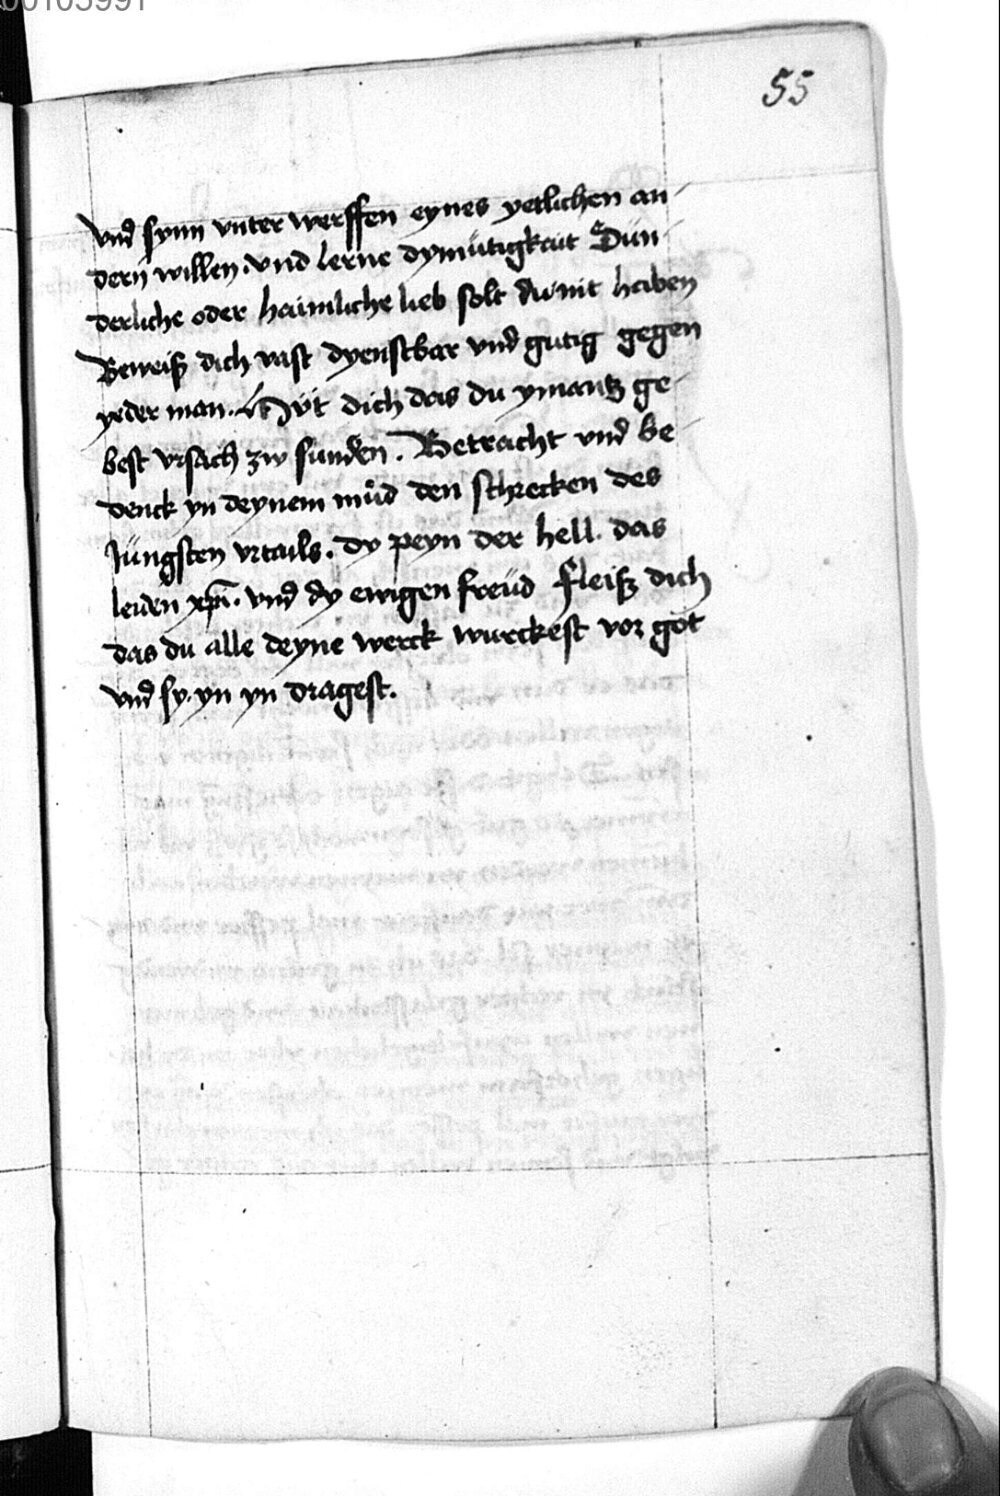 00103991
55
vnd synn vnter werffen eynes yetlichen an
dern willen. vnd lerne dymütigkait Sün
derliche oder haimliche lieb solt du nit haben
Beweiß dich vast dyenstbar vnd gutig gegen
yeder man. Hüt dich das du ymantz ge
best vrsach zw sünden. Betracht vnd be
denck yn deynem můd den schrecken des
Jüngsten vrtails. dy peyn der hell. das
leiden xpi. vnd dy ewigen freüd fleiß dich
das du alle deyne werck wurckest vor got
vnd sy yn yn dragest.